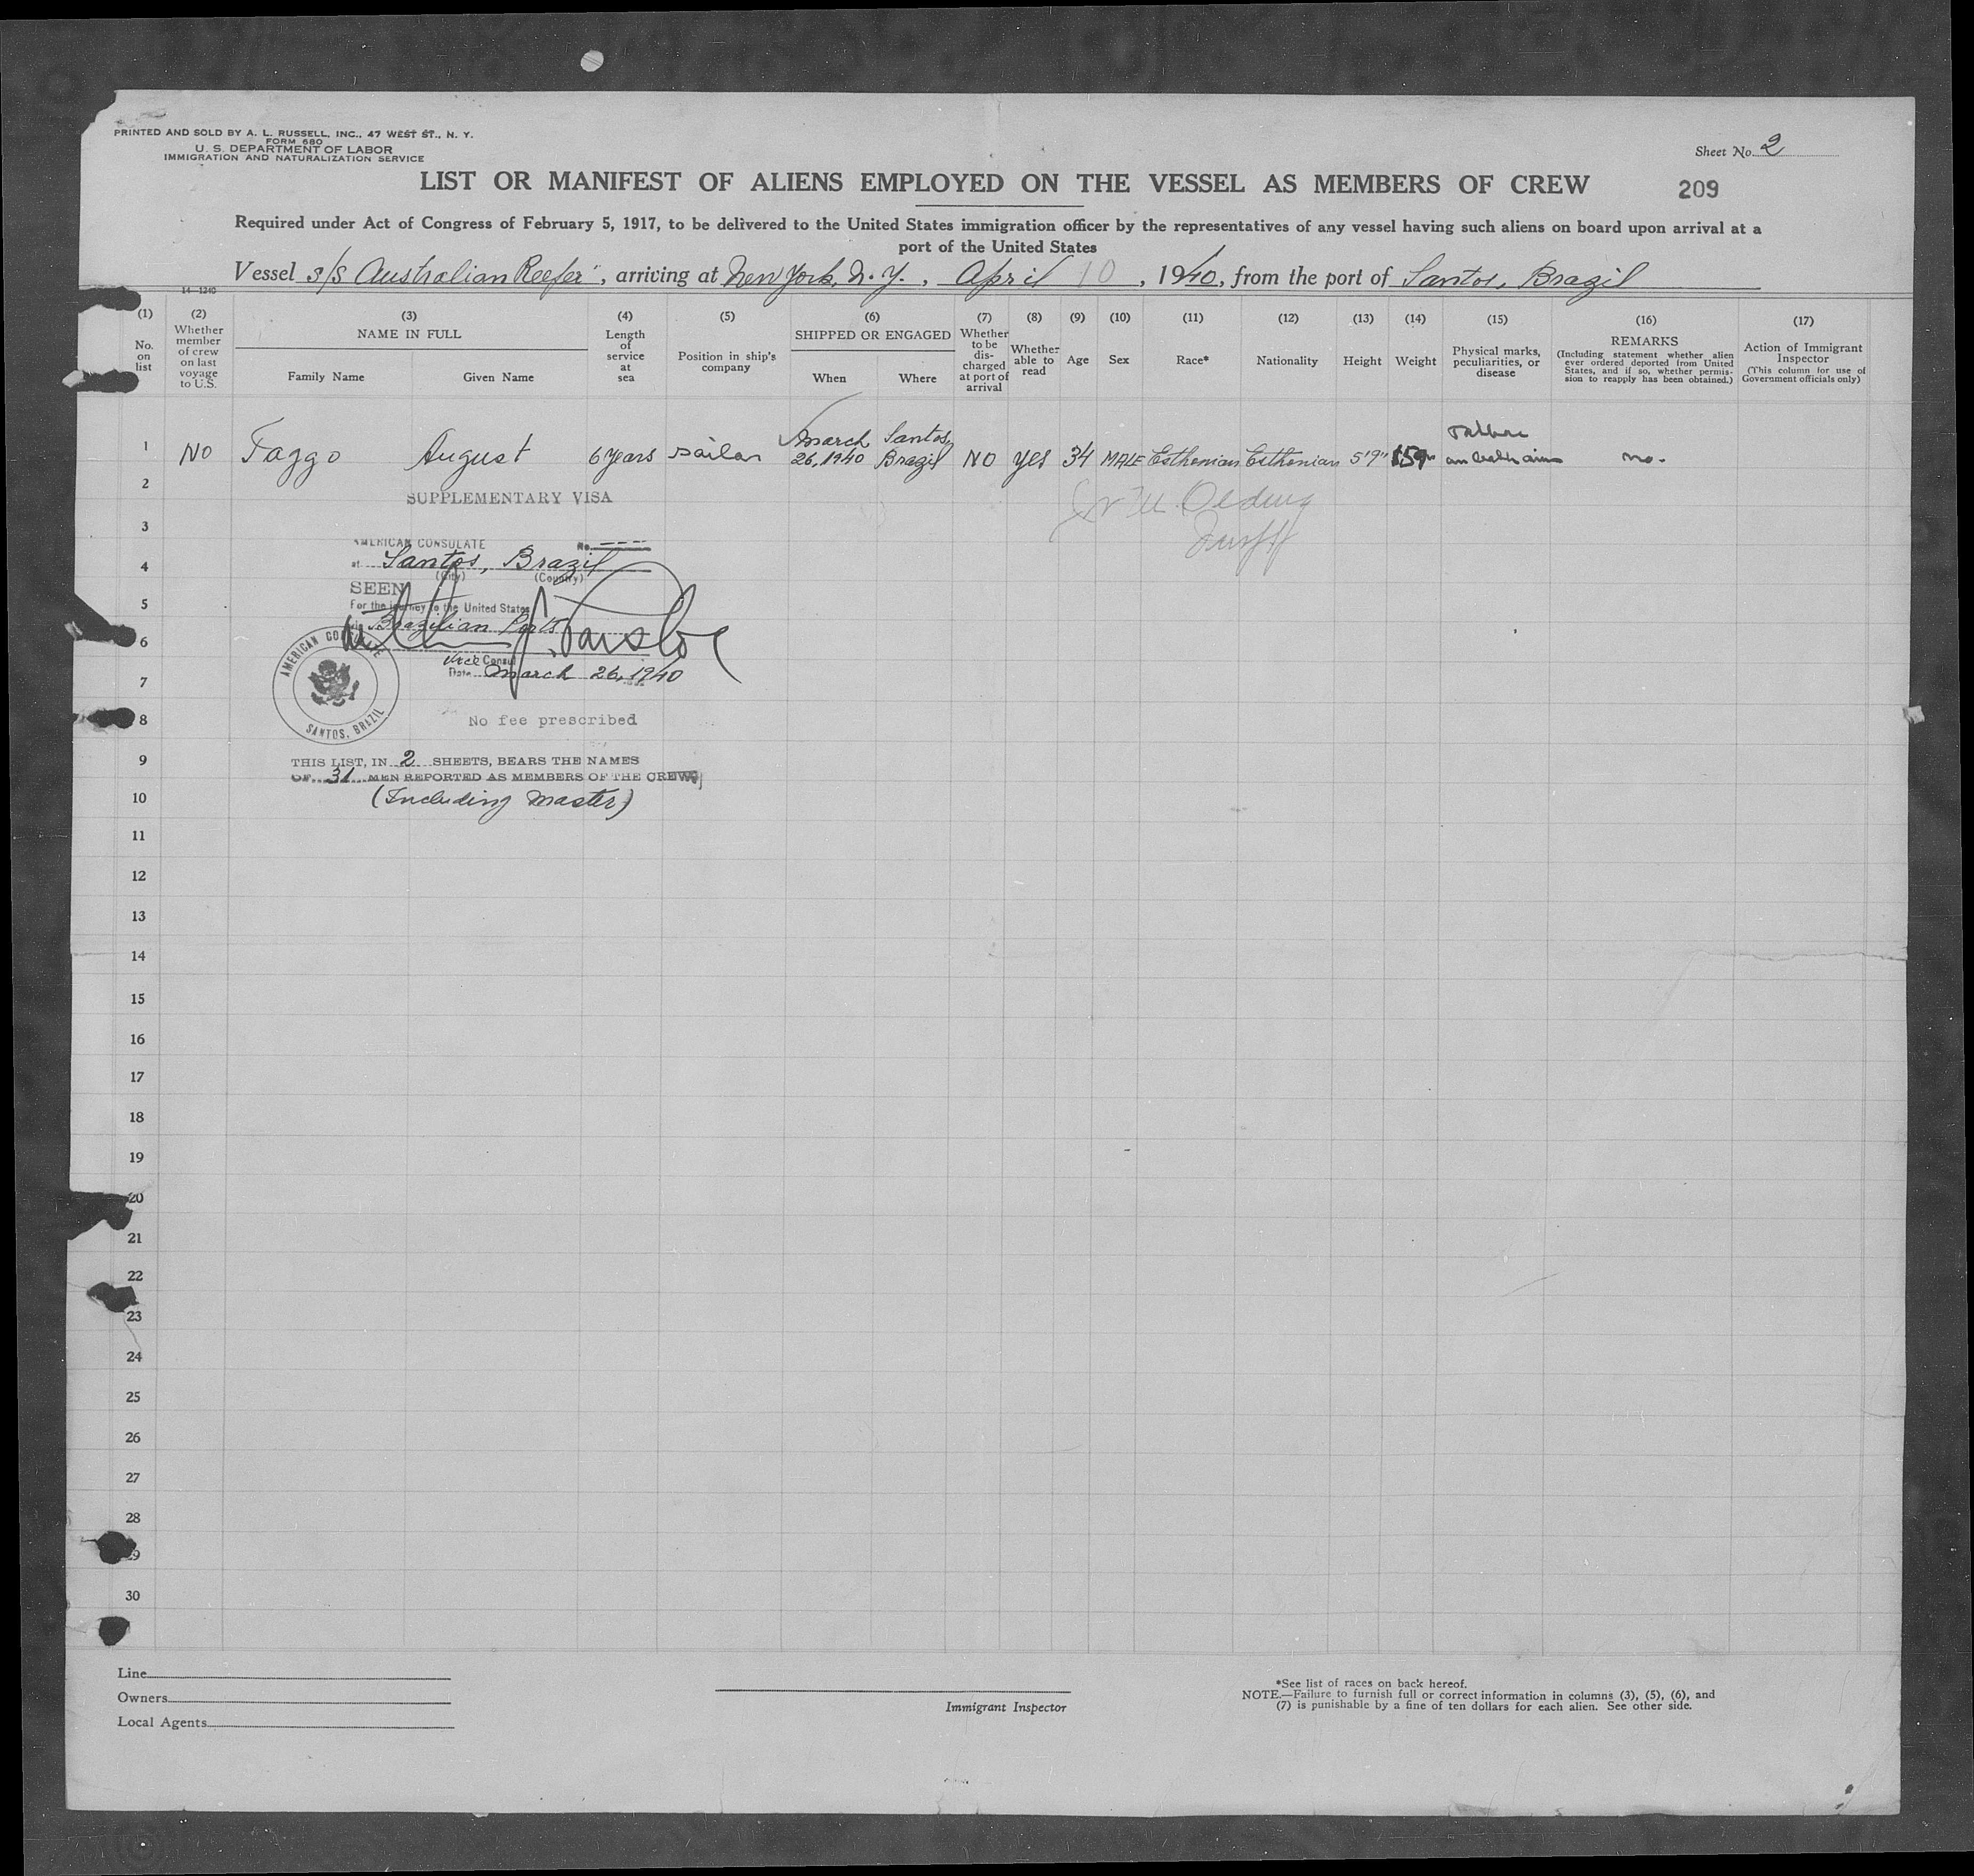 PRINTED AND SOLD BY A. L. RUSSELL, INC., 47 WEST ST., N. Y.
FORM 680
U. S. DEPARTMENT OF LABOR
IMMIGRATION AND NATURALIZATION SERVICE
Sheet No. 2
LIST OR MANIFEST OF ALIENS EMPLOYED ON THE VESSEL AS MEMBERS OF CREW
209
Required under Act of Congress of February 5, 1917, to be delivered to the United States immigration officer by the representatives of any vessel having such aliens on board upon arrival at a
port of the United States
Vessel s/s Australian Reefer", arriving at New York, N. Y., April 10, 1940, from the port of Santos, Brazil
14—1240
(1) No. on list
(2) Whether member of crew on last voyage to U.S.
(3) NAME IN FULL
Family Name Given Name
(4) Length of service at sea
(5) Position in ship's company
(6) SHIPPED OR ENGAGED
When Where
(7) Whether to be discharged at port of arrival
(8) Whether able to read
(9) Age
(10) Sex
(11) Race*
(12) Nationality
(13) Height
(14) Weight
(15) Physical marks, peculiarities, or disease
(16) REMARKS
(Including statement whether alien ever ordered deported from United States, and if so, whether permission to reapply has been obtained.)
(17) Action of Immigrant Inspector
(This column for use of Government officials only)
1 No Faggo August 6 years sailor March 26, 1940 Santos, Brazil NO yes 34 MALE Esthonian Esthonian 5'9" 159 no.
2
SUPPLEMENTARY VISA
3
AMERICAN CONSULATE No. ----
4
at Santos, Brazil
(City) (Country)
SEEN
5
For the journey to the United States
Brazilian Ports
6
Vice Consul
7
Date March 26, 1940
AMERICAN CONSULATE
SANTOS, BRAZIL
8
No fee prescribed
9
THIS LIST, IN 2 SHEETS, BEARS THE NAMES
OF 31 MEN REPORTED AS MEMBERS OF THE CREW
10
(Including Master)
11
12
13
14
15
16
17
18
19
20
21
22
23
24
25
26
27
28
29
30
Line
Owners
Local Agents
Immigrant Inspector
*See list of races on back hereof.
NOTE.—Failure to furnish full or correct information in columns (3), (5), (6), and
(7) is punishable by a fine of ten dollars for each alien. See other side.